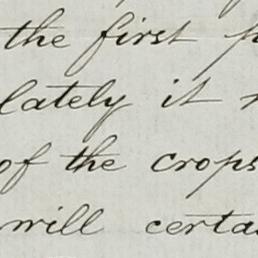 the first
lately it
of the crops
will certa